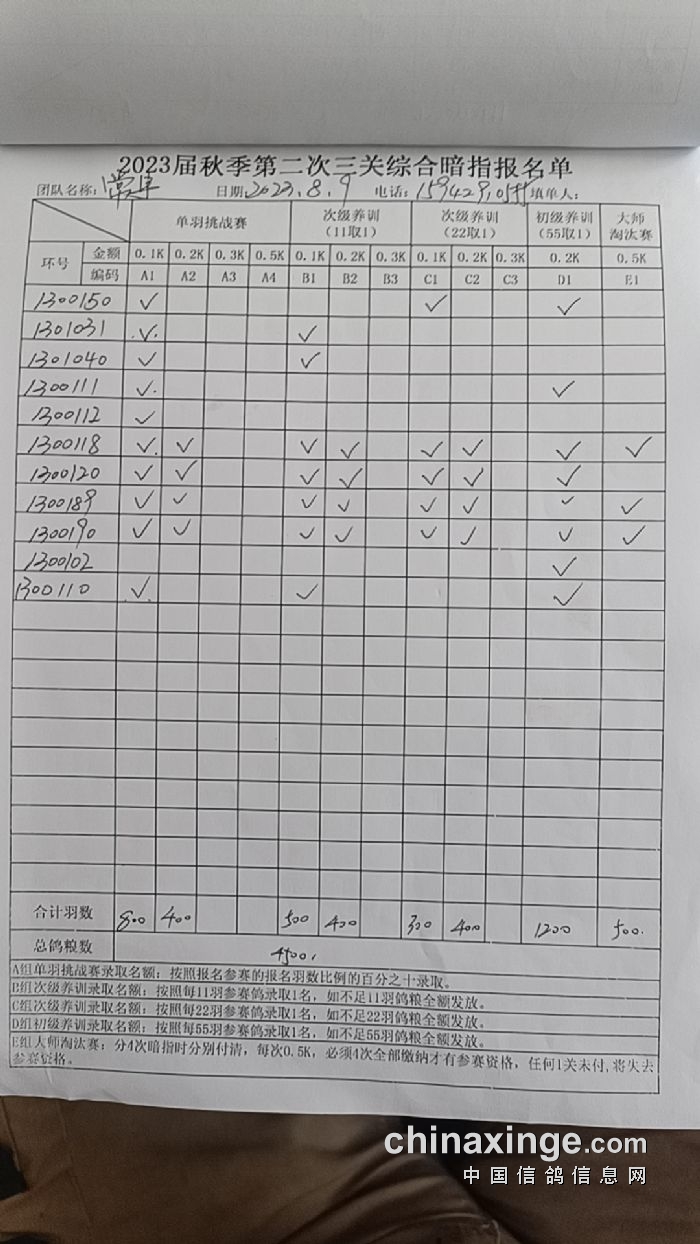 2023届秋季第二次三关综合暗指报名单
团队名称: 日期: 2023.8.9 电话: 填单人:
单羽挑战赛 次级养训（11取1） 次级养训（22取1） 初级养训（55取1） 大师淘汰赛
环号 金额 0.1K 0.2K 0.3K 0.5K 0.1K 0.2K 0.3K 0.1K 0.2K 0.3K 0.2K 0.5K
编码 A1 A2 A3 A4 B1 B2 B3 C1 C2 C3 D1 E1
1300150 ✓ ✓ ✓
1301031 ✓ ✓
1301040 ✓ ✓
1300111 ✓ ✓
1300112 ✓
1300118 ✓ ✓ ✓ ✓ ✓ ✓ ✓ ✓
1300120 ✓ ✓ ✓ ✓ ✓ ✓ ✓
1300189 ✓ ✓ ✓ ✓ ✓ ✓ ✓ ✓
1300190 ✓ ✓ ✓ ✓ ✓ ✓ ✓ ✓
1300102 ✓
1300110 ✓ ✓ ✓
合计羽数 800 400 500 400 300 400 1200 500.
总鸽粮数 4500.
A组单羽挑战赛录取名额：按照报名参赛的报名羽数比例的百分之十录取。
B组次级养训录取名额：按照每11羽参赛鸽录取1名，如不足11羽鸽粮全额发放。
C组次级养训录取名额：按照每22羽参赛鸽录取1名，如不足22羽鸽粮全额发放。
D组初级养训录取名额：按照每55羽参赛鸽录取1名，如不足55羽鸽粮全额发放。
E组大师淘汰赛：分4次暗指时分别付清，每次0.5K，必须4次全部缴纳才有参赛资格，任何1关未付,将失去
参赛资格。
chinaxinge.com
中国信鸽信息网